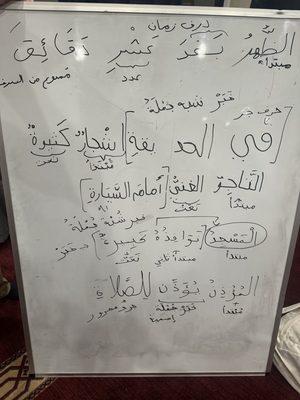 ظرف زمان
الظُّهْرُ بَعْدَ عَشْرِ دَقَائِقَ
مبتدأ عدد ممنوع من الصرف
خبر شبه جملة
حرف جر
[في الحديقةِ] أشجارٌ كثيرةٌ
مبتدأ نعت
التاجرُ الغنيُّ [أمامَ السيارةِ]
مبتدأ نعت
خبر شبه جملة
المسجدُ نوافذُهُ كبيرةٌ
مبتدأ مبتدأ ثاني خبر
المؤذنُ يؤذّن للصلاةِ
مبتدأ خبر جملة جار ومجرور